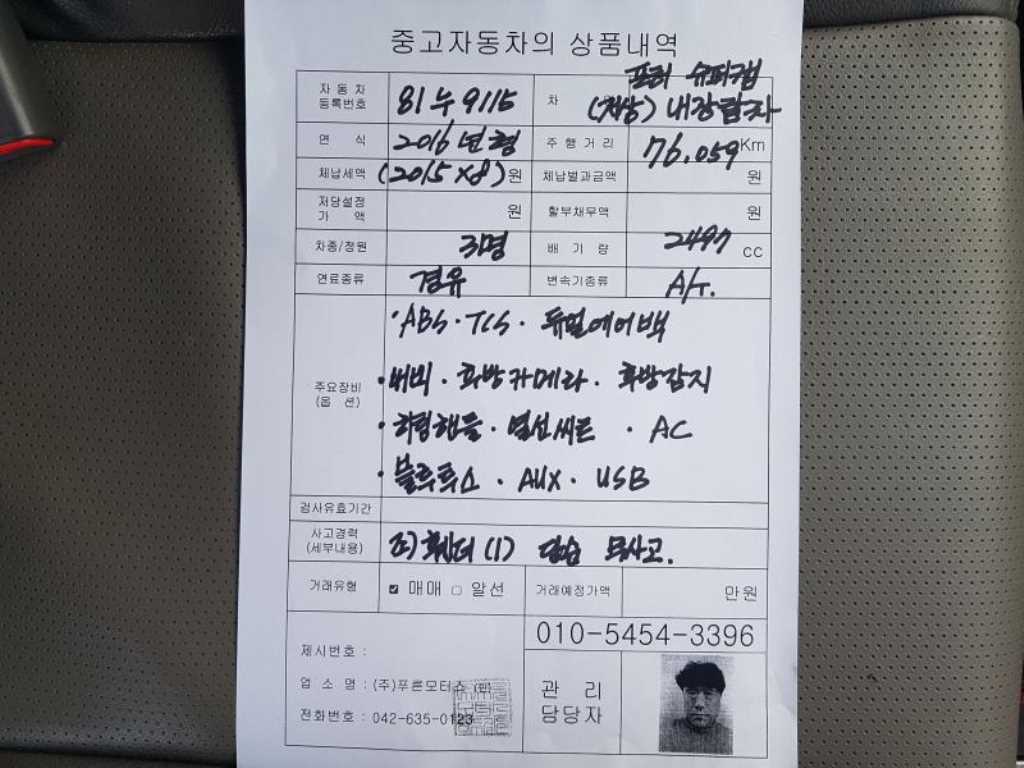 중고자동차의 상품내역
포터 슈퍼캡
자동차 등록번호 81누9115 차 (저상) 내장탑차
연 식 2016년형 주행거리 76,059 Km
체납세액 (2015 x8) 원 체납벌과금액 원
저당설정 가 액 원 할부채무액 원
차종/정원 3명 배 기 량 2497 CC
연료종류 경유 변속기종류 A/T.
주요장비 (옵 션)
·ABS·TCS· 듀얼에어백
·네비·후방카메라·후방감지
·핸들·열선씨트 · AC
·블루투스·AUX·USB
검사유효기간
사고경력 (세부내용) 조)휀더(1) 단순 무사고.
거래유형 매매 알선 거래예정가액 만원
010-5454-3396
제시번호 :
업 소 명 : (주)푸른모터스 (인)
전화번호 : 042-635-0123
관 리 담당자